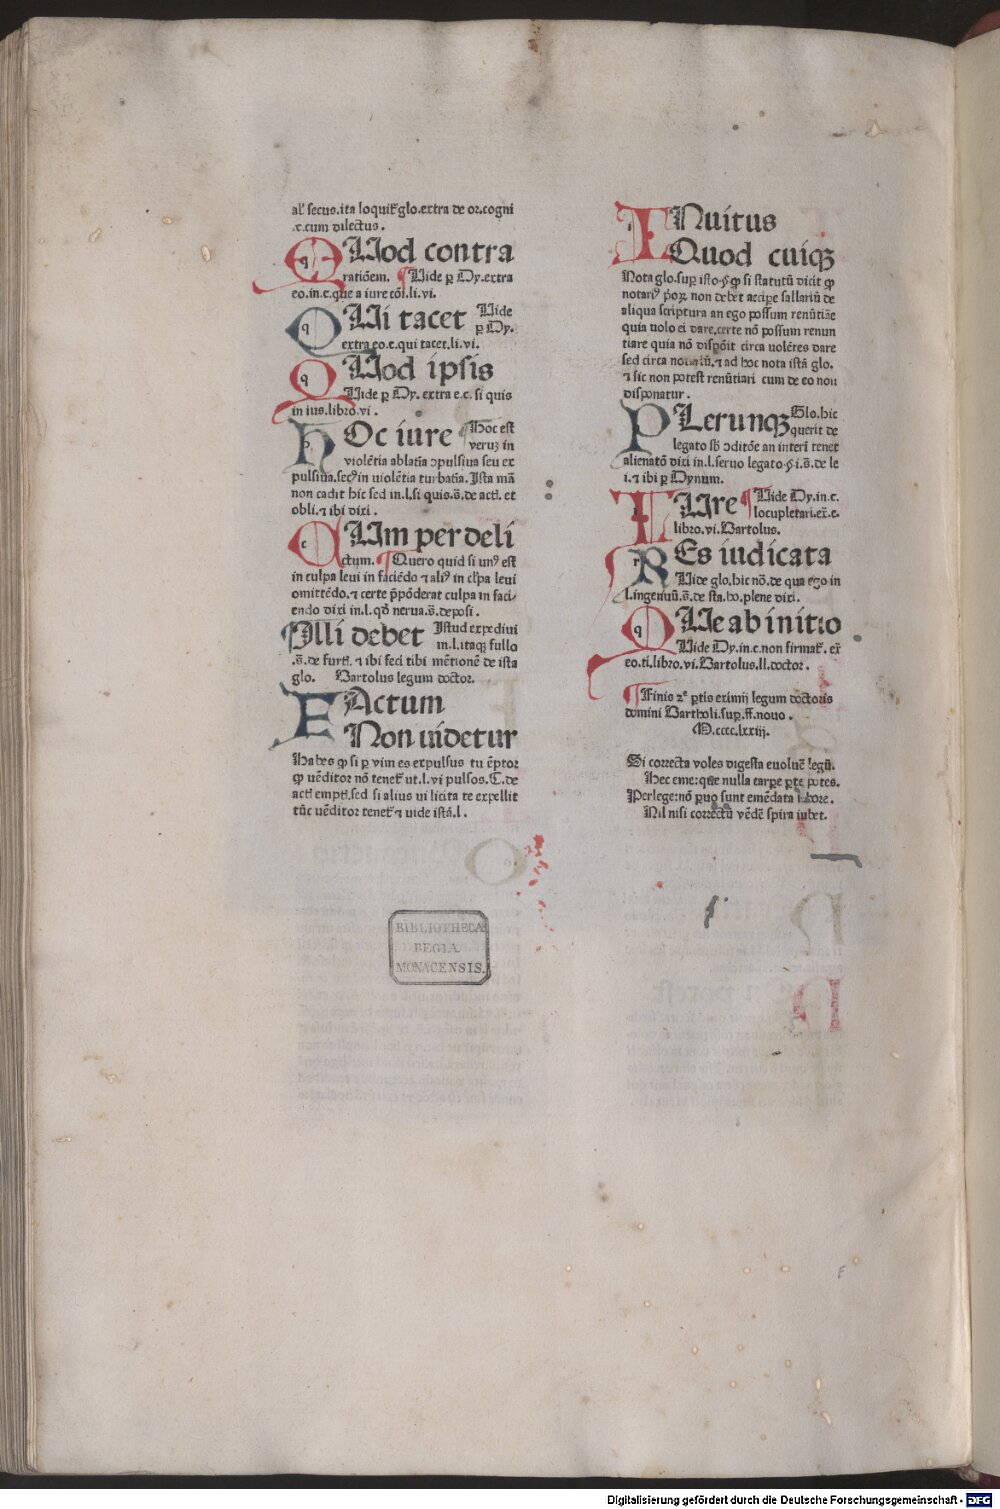 al' secus.ita loquit̃ glo.extra de or.cogni
.c.cum dilectus.
QUod contra
rationẽm. Uide ꝑ Dy.extra
eo.in.c.que a iure cõi.li.vi.
QUi tacet Uide
ꝑ Dy.
extra eo.c.qui tacet.li.vi.
QUod ipsis
Uide ꝑ Dy. extra e.c. si quis
in ius.libro.vi.
HOc iure Hoc est
veruȝ in
violẽtia ablatĩa ɔpulsiua seu ex
pulsiua.secꝰ in violẽtia turbatĩa. Ista mã
non cadit hic sed in.l.si quis.s̃.de acti. et
obli.⁊ ibi dixi.
CUm per deli
ctum. Quero quid si unꝰ est
in culpa leui in faciẽdo ⁊ aliꝰ in cl̃pa leui
omittẽdo.⁊ certe p̃põderat culpa in faci⸗
endo dixi in.l.qđ nerua.s̃.deposi.
Illi debet Istud expediui
in.l.itaqȝ fullo
.s̃.de furti. ⁊ ibi feci tibi mẽtionẽ de ista
glo. Bartolus legum doctor.
FActum
Non uidetur
Habes ꝙ si ꝑ vim es expulsus tu ẽptor
ꝙ uẽditor nõ tenet̃ ut.l.vi pulsos.C.de
acti empti.sed si alius ui licita te expellit
tũc uẽditor tenet̃ ⁊ uide istã.l.
INuitus
Quod cuiqȝ
Nota glo.suꝑ isto.§ ꝙ si statutũ dicit ꝙ
notariꝰ p̃oꝝ non debet acciꝑe sallariũ de
aliqua scriptura an ego possum renũtiãe
quia uolo ei dare.certe nõ possum renun
tiare quia nõ dispõit circa volẽtes dare
sed circa notariũ.⁊ ad hoc nota ista glo.
⁊ sic non potest renũtiari cum de eo non
disponatur.
PLerunqȝ Glo.hic
querit de
legato sb̃ ɔditõe an interĩ tenet
alienatõ dixi in.l.seruo legato.§ i.s̃.de le
i.⁊ ibi ꝑ Dynum.
IUre Uide Dy.in.c.
locupletari.ex̃.e.
libro.vi.Bartolus.
REs iudicata
Uide glo.hic nõ.de qua ego in
l.ingenuũ.s̃.de sta.ho.plene dixi.
QUe ab initio
Uide Dy.in.c.non firmat̃. ex̃
eo.ti.libro.vi.Bartolus.ll.doctor.
Finis 2ᵉ ꝑtis eximij legum doctoris
domini Bartholi.suꝑ.ff.nouo.
M.cccc.lxxiij.
Si correcta voles digesta euoluẽ legũ.
Hec eme: que nulla carꝑe ꝑte potes.
Perlege: nõ ꝑuo sunt emẽdata labore.
Nil nisi correctũ vẽdẽ spira iubet.
BIBLIOTHECA
REGIA
MONACENSIS.
Digitalisierung gefördert durch die Deutsche Forschungsgemeinschaft - DFG